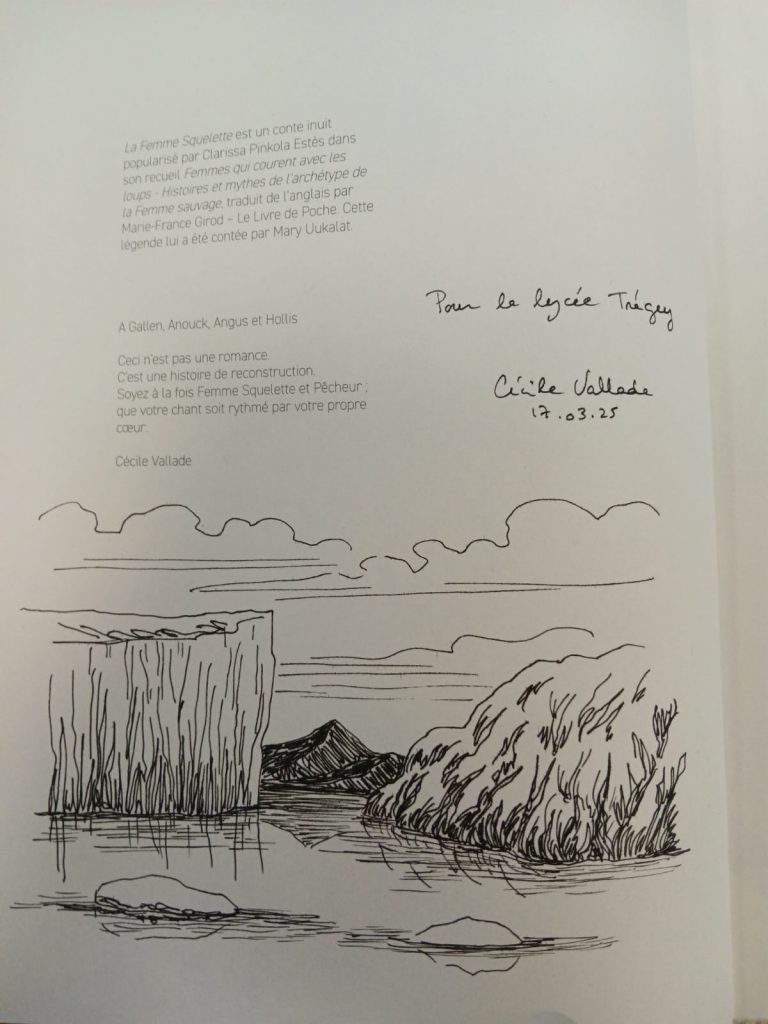 La Femme Squelette est un conte inuit
popularisé par Clarissa Pinkola Estès dans
son recueil Femmes qui courent avec les
loups - Histoires et mythes de l'archétype de
la Femme sauvage, traduit de l'anglais par
Marie-France Girod – Le Livre de Poche. Cette
légende lui a été contée par Mary Uukalat.
A Gallen, Anouck, Angus et Hollis
Ceci n'est pas une romance.
C'est une histoire de reconstruction.
Soyez à la fois Femme Squelette et Pêcheur ;
que votre chant soit rythmé par votre propre
cœur.
Cécile Vallade
Pour le lycée Trégey
Cécile Vallade
17.03.25